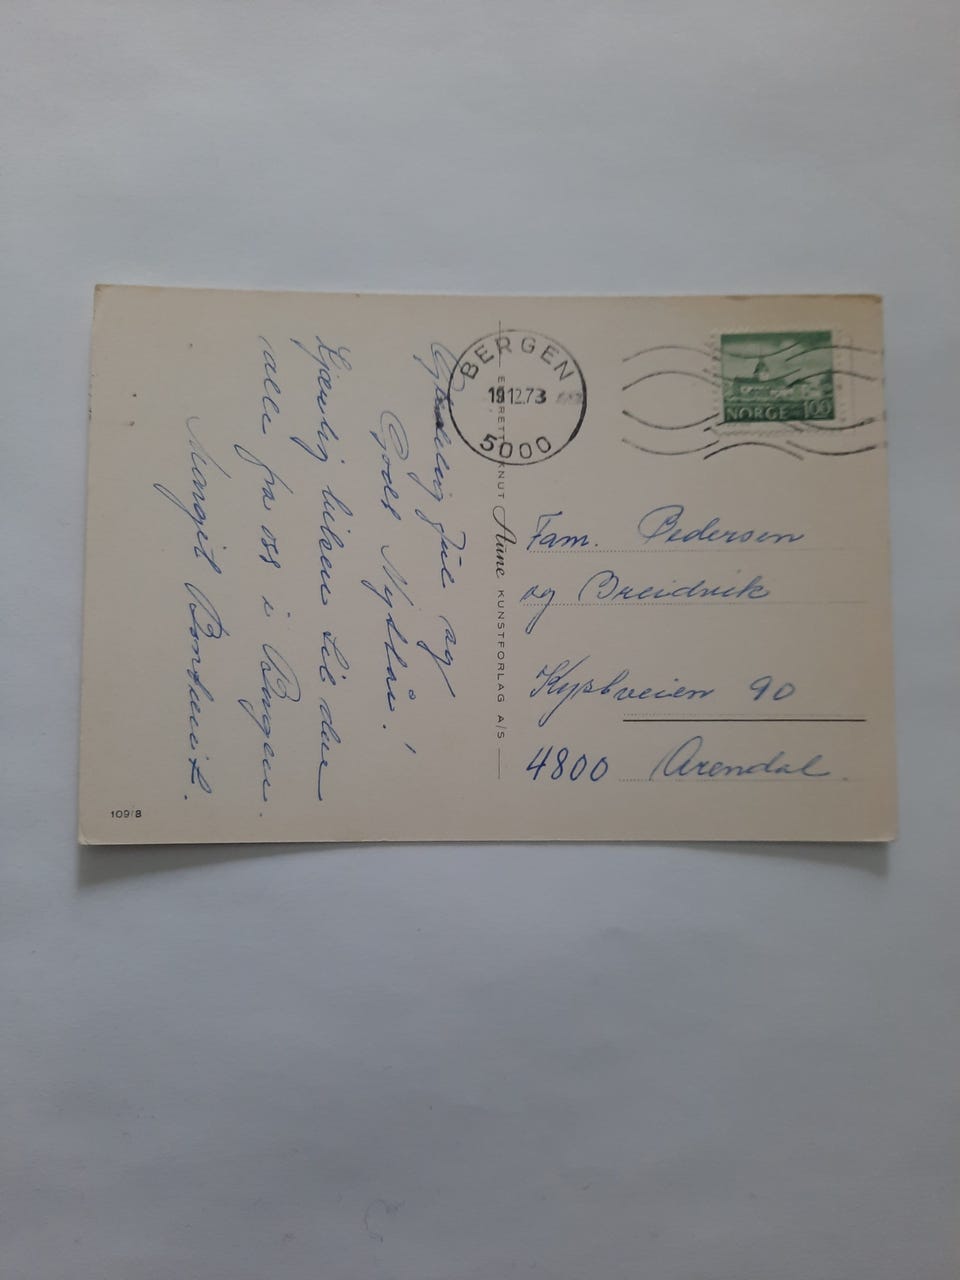 Gledelig Jul og
Godt Nyttår!
Hjertelig hilsen til dere
alle fra oss i Bergen.
Margit
109/8
ENERETT: KNUT Aune KUNSTFORLAG A/S
BERGEN
19.12.73
5000
NORGE 100
Fam. Pedersen
og Breidvik
4800 Arendal.
90